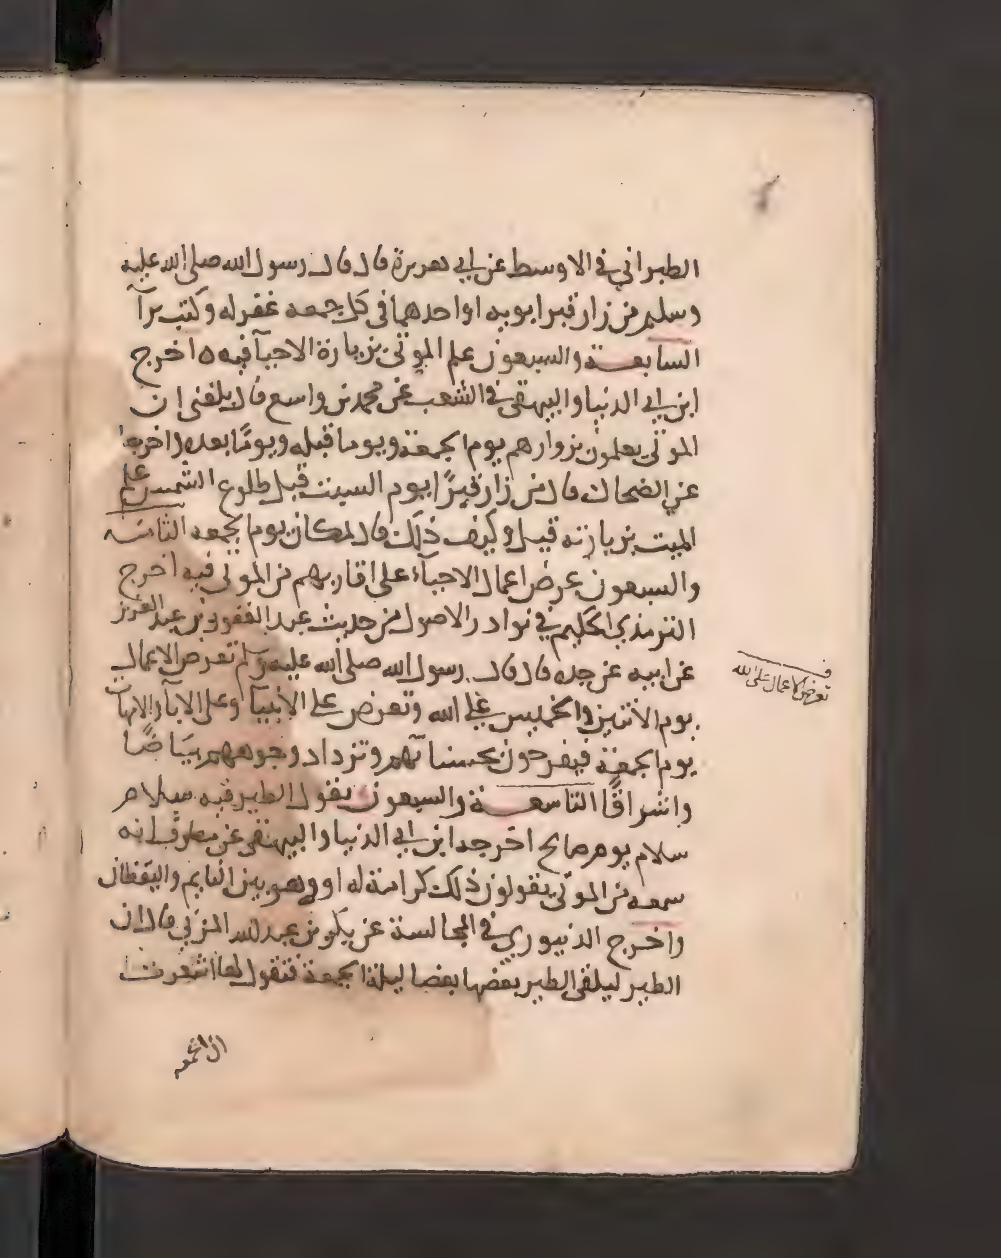 الطبراني في الاوسط عن ابي هريرة قال قال رسول الله صلى الله عليه
وسلم من زار قبر ابويه او احدهما في كل جمعه غفر له وكتب برآ
السابعة والسبعون علم الموتى بزيارة الاحيآ فيه ه اخرج
ابن ابي الدنيا والبيهقي في الشعب عن محمد بن واسع قال بلغني ان
الموتى يعلمون بزوارهم يوم الجمعة ويوما قبله ويومًا بعده واخرجا
عن الضحاك قال من زار قبرًا يوم السبت قبل طلوع الشمس علم
الميت بزيارته قيل وكيف ذلك قال لمكان يوم الجمعه الثامنه
والسبعون عرض اعمال الاحيآء على اقاربهم من الموتى فيه اخرج
الترمذي الحكيم في نوادر الاصول من حديث عبد الغفور بن عبد العزيز
عن ابيه عن جده قال قال رسول الله صلى الله عليه وسلم تعرض الاعمال
يوم الاثنين والخميس على الله وتعرض على الانبيآ وعلى الابآ والامهات
يوم الجمعة فيفرحون بحسناتهم وتزداد وجوههم بياضًا
واشراقًا التاسعة والسبعون يقول الطير فيه سلام
سلام يوم صالح اخرجه ابن ابي الدنيا والبيهقي عن مطرف انه
سمعه من الموتى يقولون ذلك كرامة له او وهو بين النايم واليقظان
واخرج الدينوري في المجالسة عن بكر بن عبد الله المزني قال ان
الطير ليلقى الطير بعضها بعضا ليلة الجمعة فتقول لها اشعرت
ان الجمعه
قف
تعرض الاعمال على الله